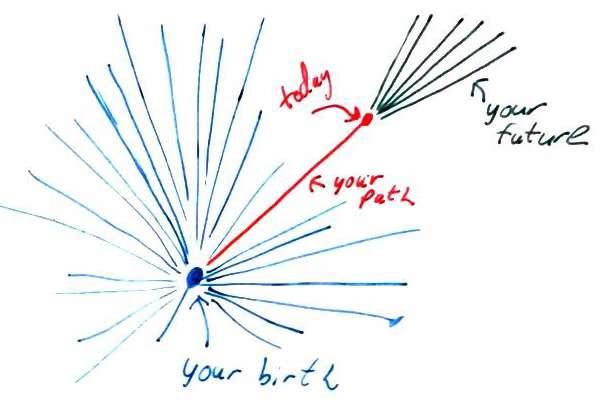 today
your
future
your
path
your birth